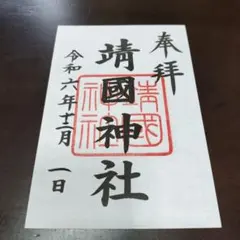 奉拝
靖國神社
靖国神社
令和六年十二月一日